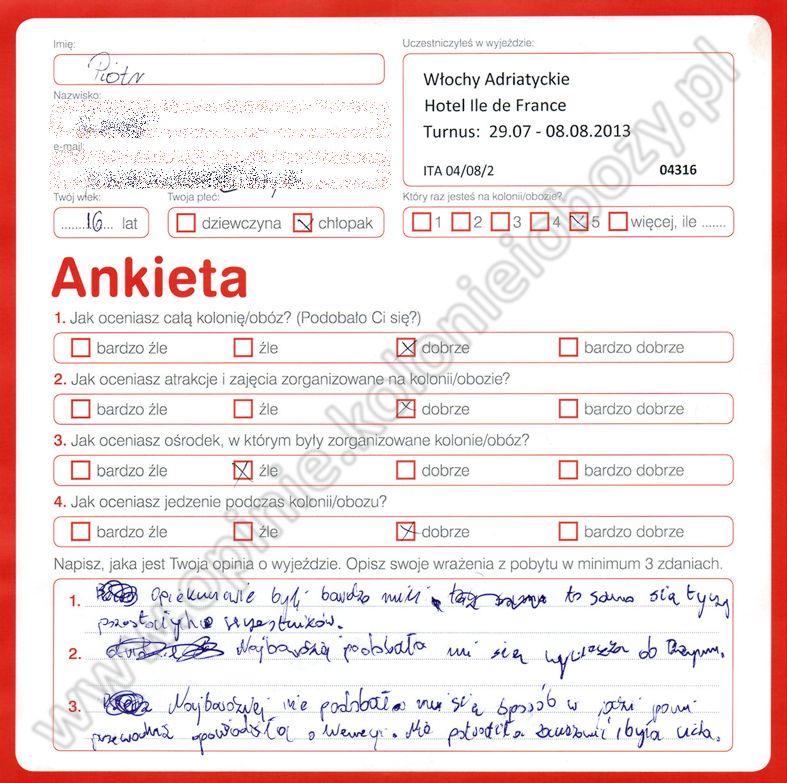 Imię:
Piotr
Uczestniczyłeś w wyjeździe:
Włochy Adriatyckie
Hotel Ile de France
Turnus: 29.07 - 08.08.2013
ITA 04/08/2
04316
Nazwisko:
e-mail:
Twój wiek:
16 lat
Twoja płeć:
dziewczyna chłopak
Który raz jesteś na kolonii/obozie?
1 2 3 4 5 więcej, ile .......
Ankieta
1. Jak oceniasz całą kolonię/obóz? (Podobało Ci się?)
bardzo źle źle dobrze bardzo dobrze
2. Jak oceniasz atrakcje i zajęcia zorganizowane na kolonii/obozie?
bardzo źle źle dobrze bardzo dobrze
3. Jak oceniasz ośrodek, w którym były zorganizowane kolonie/obóz?
bardzo źle źle dobrze bardzo dobrze
4. Jak oceniasz jedzenie podczas kolonii/obozu?
bardzo źle źle dobrze bardzo dobrze
Napisz, jaka jest Twoja opinia o wyjeździe. Opisz swoje wrażenia z pobytu w minimum 3 zdaniach.
1. Opiekunowie byli bardzo mili to samo się tyczy
pozostałych uczestników.
2. Najbardziej podobała mi się wycieczka do Rzymu.
3. Najbardziej nie podobał mi się sposób w jaki pani
przewodnik opowiadała o Wenecji. Nie potrafiła i była
www.opinie.kolonieiobozy.pl